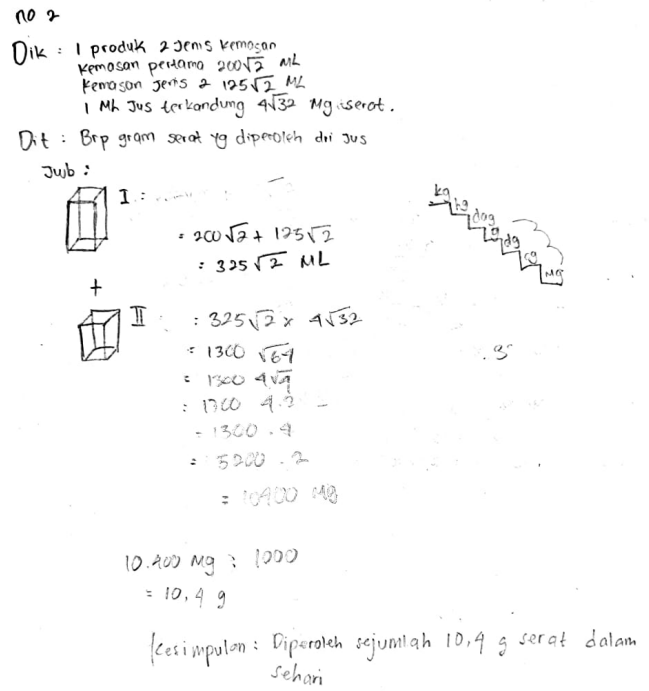 no 2
Dik : 1 produk 2 jenis kemasan
kemasan pertama 200√2 ML
kemasan jenis 2 125√2 ML
1 ML Jus terkandung 4√32 Mg serat.
Dit : Brp gram serat yg diperoleh dri jus
Jwb :
I :
= 200√2 + 125√2
= 325√2 ML
+
II : 325√2 × 4√32
= 1300 √64
= 1300 4√4
: 1300 4.2
= 1300 . 4
= 5200 . 2
= 10400 Mg
kg
hg
dag
g
dg
cg
Mg
10.400 Mg : 1000
= 10,4 g
Kesimpulan : Diperoleh sejumlah 10,4 g serat dalam
sehari